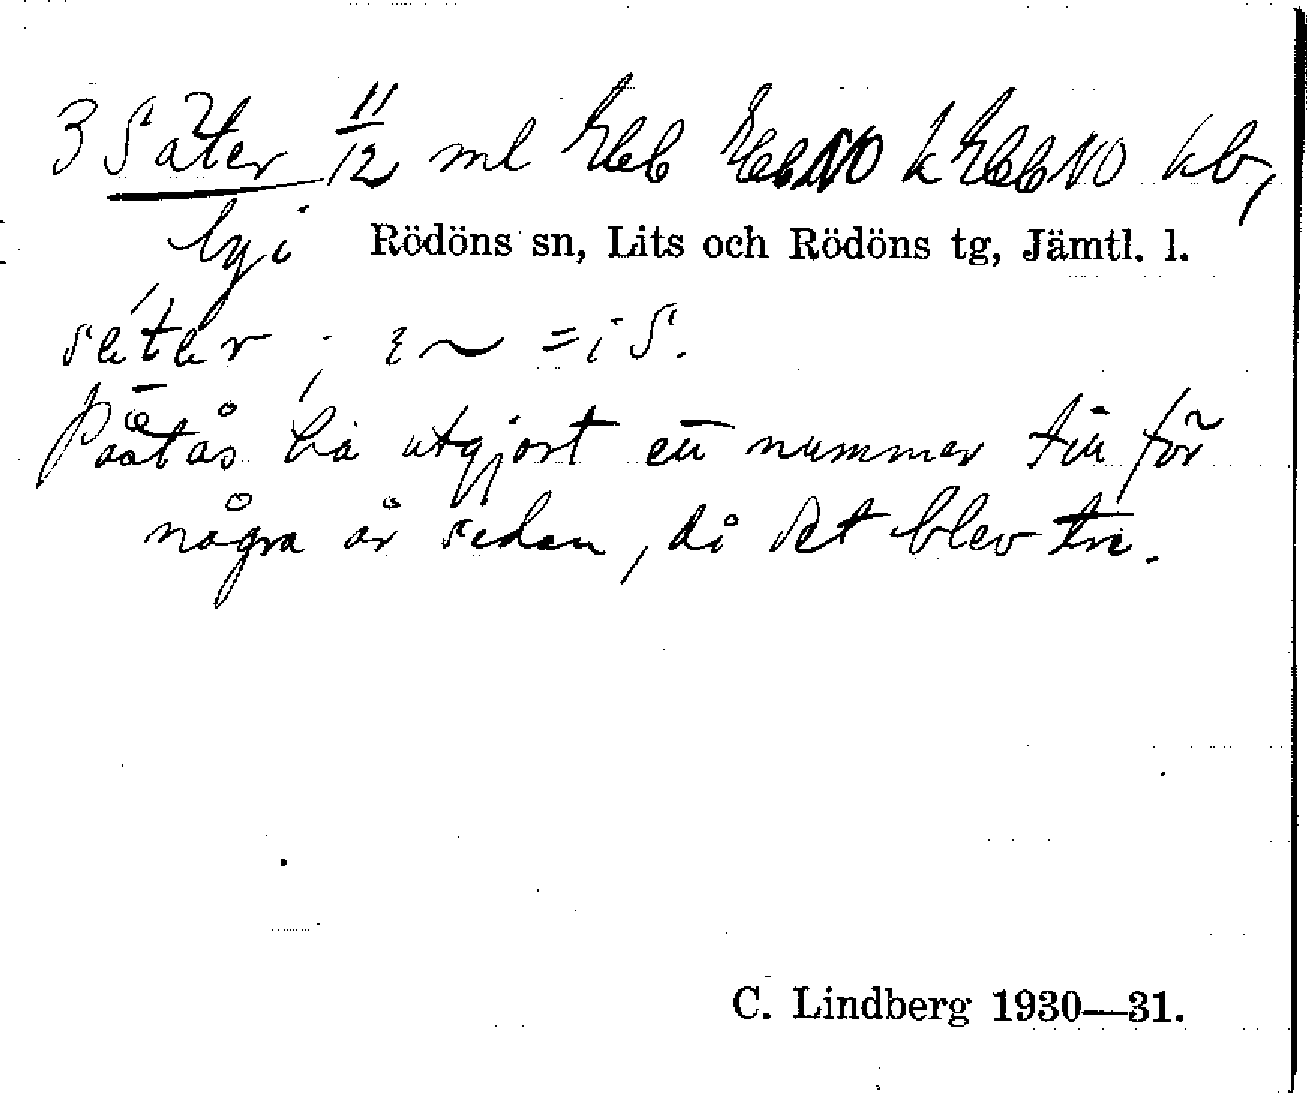 3 Säter 11/12 ml kb,
by i Rödöns sn, Lits och Rödöns tg, Jämtl. l.
séter, i ~ = i S.
Påstås ha utgjort ett nummer till för
några år sedan, då det blev tre.
C. Lindberg 1930—31.